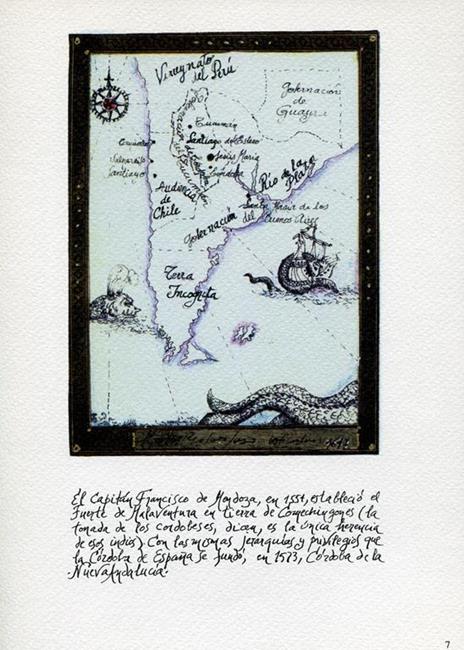 Virreynato
del Perú
Gobernacion
de
Guayra
Tucuman
Santiago del Estero
Jesús María
Cordoba
Gobernacion de Tucuman
Valparaiso
Santiago
Audiencia
de
Chile
Rio de la
Plata
Gobernación del
Santa Maria de los
Buenos Aires
Terra
Incognita
El Capitán Francisco de Mendoza, en 1551, estableció el
Fuerte de Malaventura en tierra de Comechingones (la
tonada de los cordobeses, dicen, es la única herencia
de esos indios). Con las mismas jerarquías y privilegios que
la Córdoba de España se fundó, en 1573, Córdoba de la
Nueva Andalucía.
7